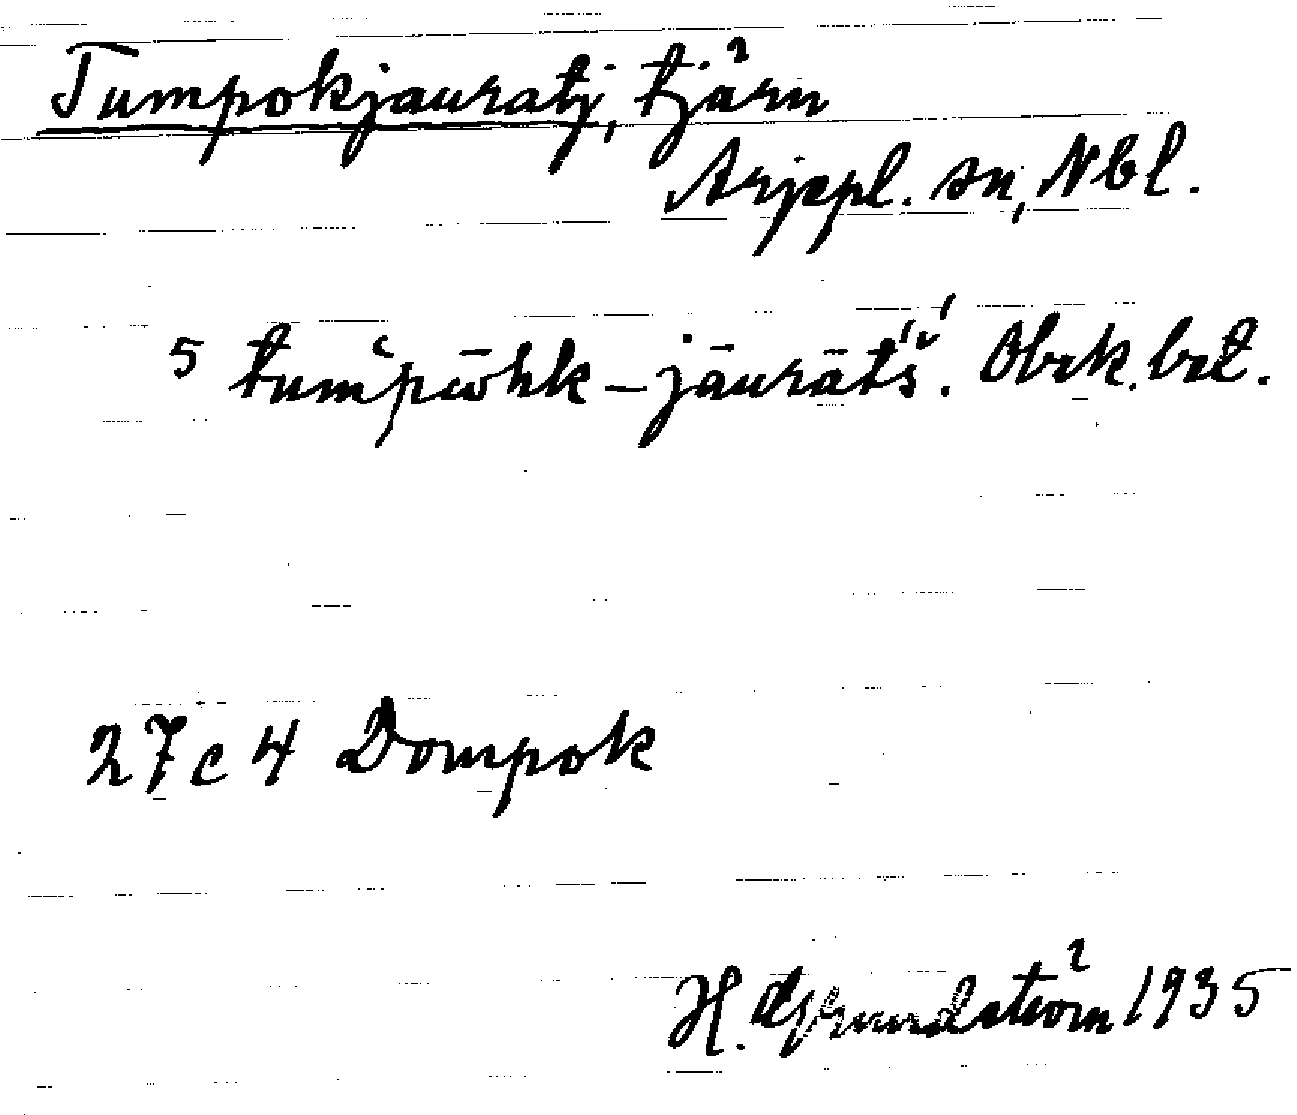 Tumpokjauratj, tjärn
Arjepl. sn, Nbl.
5 tum̀pω̄hk-jāurātś̌. Obek. bet.
27 c 4 Dompok
H. Grundström 1935